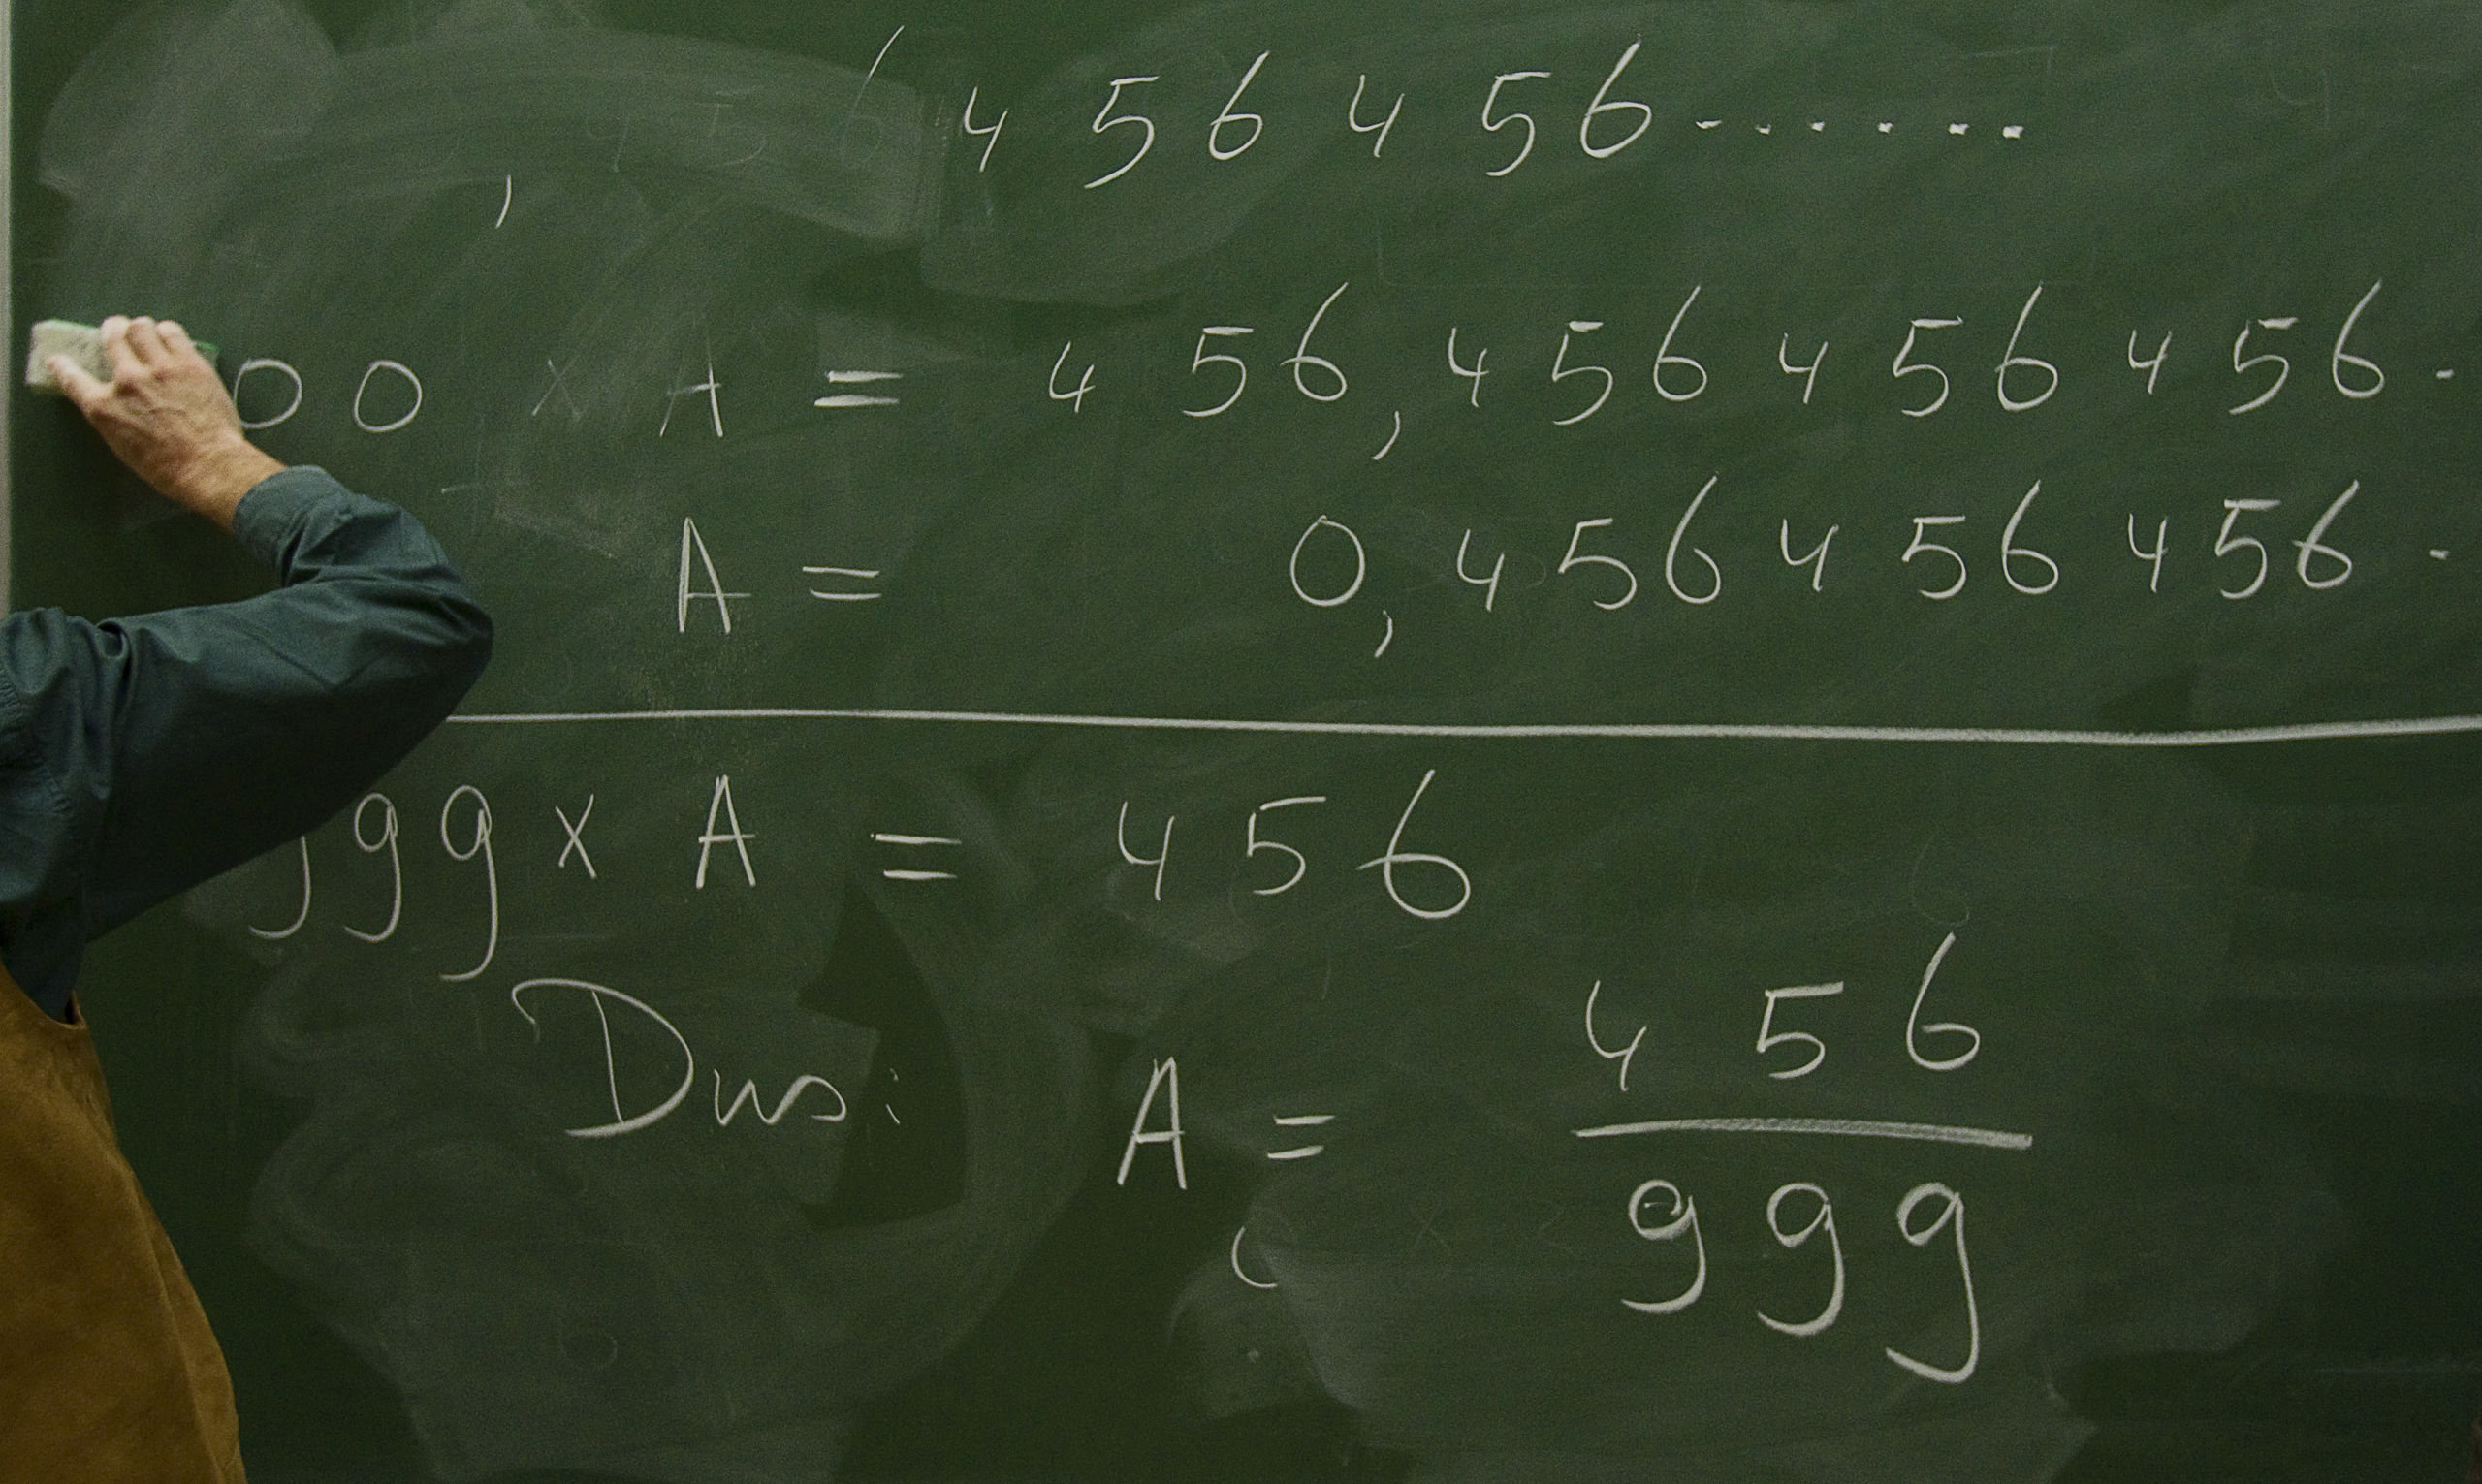 , 456456......
00 x A = 456,456456456.
A = 0,456456456.
999 x A = 456
Dus: A = 456
999